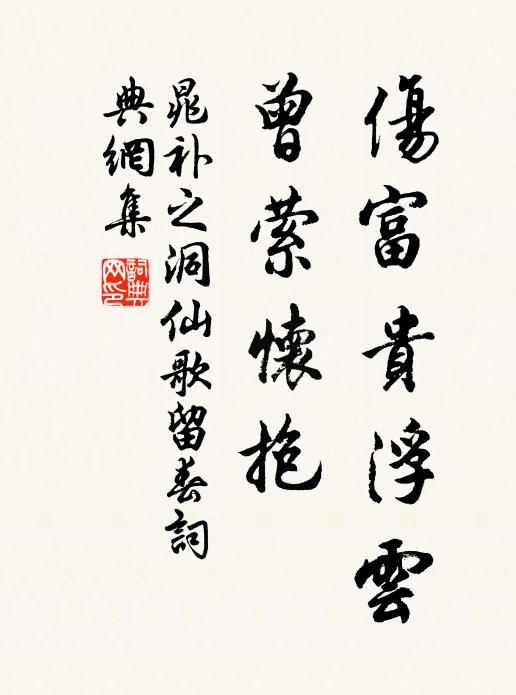 傷富貴浮雲
曾縈懷抱
晁補之洞仙歌留春詞
典網集
詞典
网印